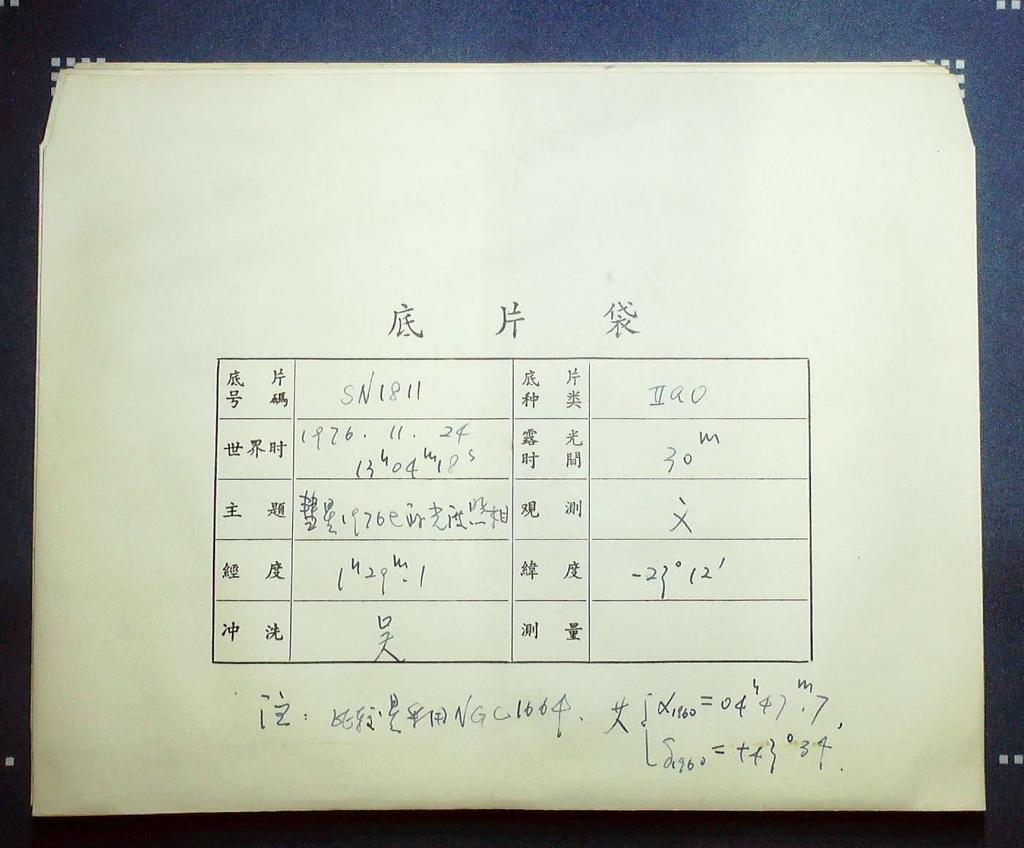 底片袋
底片号碼 SN1811 底片种类 IIaO
世界时 1976.11.24 13ʰ04ᵐ18ˢ 露光时間 30ᵐ
主題 彗星1976e的光度照相 观測
經度 1ʰ29ᵐ.1 緯度 -23°12′
冲洗 吴 測量
注：比较星采用NGC1664、其 α1960=04ʰ47ᵐ.7,
δ1960=+43°34.